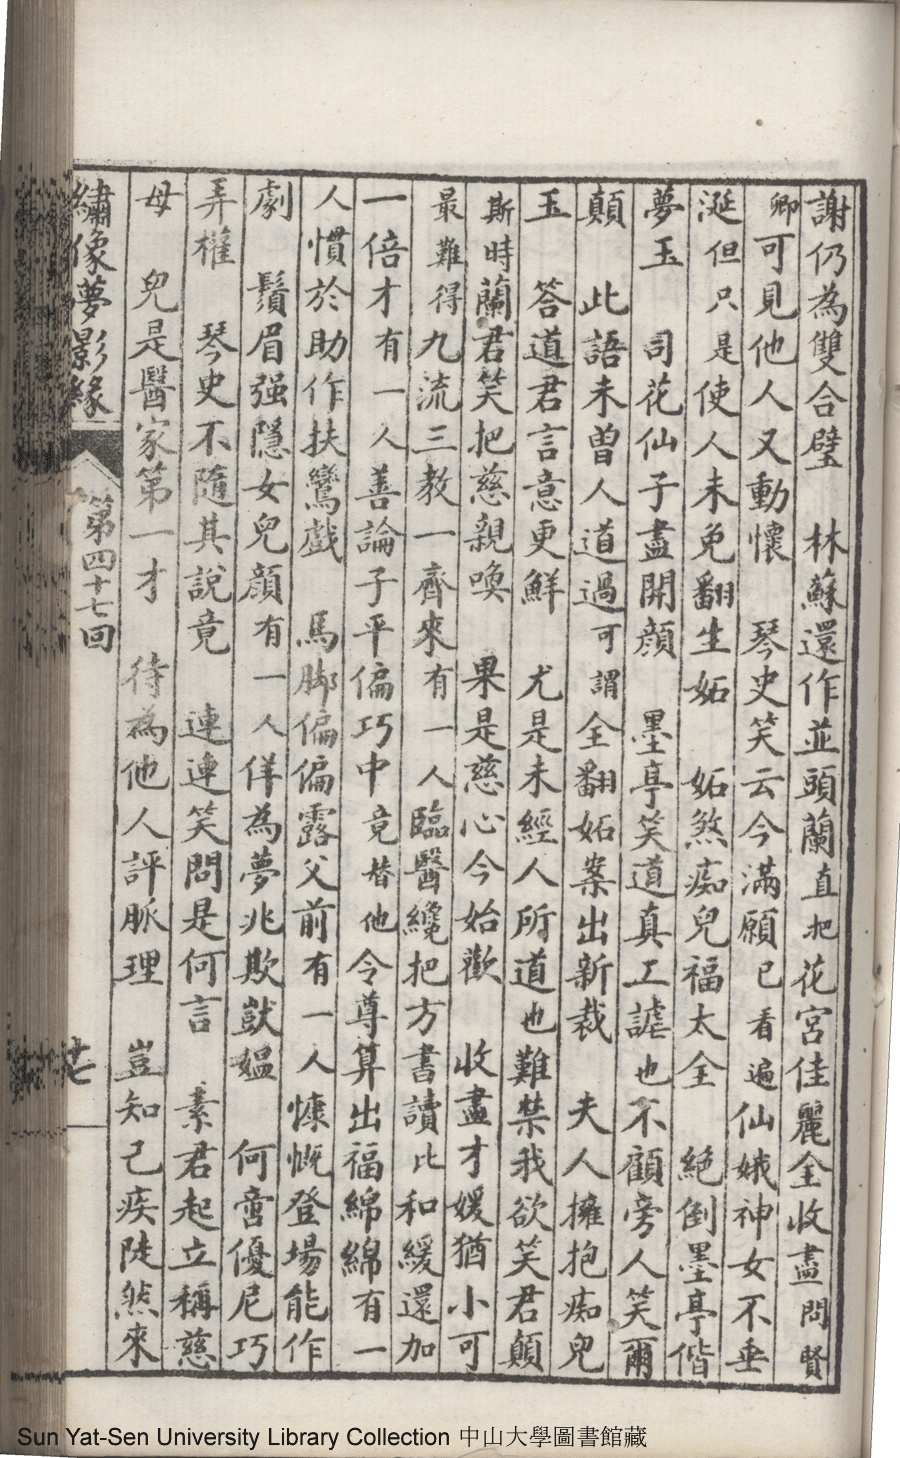 謝仍為雙合璧　林蘇還作並頭蘭直把花宮佳麗全收盡問賢
卿可見他人又動懷　琴史笑云今滿願已看遍仙娥神女不垂
涎但只是使人未免翻生妬　妬煞痴兒福太全　絕倒墨亭偕
夢玉　司花仙子盡開顔　墨亭笑道真工謔也不顧旁人笑爾
顛　此語未曽人道過可謂全翻妬案出新裁　夫人擁抱痴兒
玉　答道君言意更鮮　尤是未經人所道也難禁我欲笑君顛
斯時蘭君笑把慈親喚　果是慈心今始歡　收盡才媛猶小可
最難得九流三教一齊來有一人臨醫纔把方書讀比和緩還加
一倍才有一人善論子平偏巧中竟替他令尊算出福綿綿有一
人慣於助作扶鸞戲　馬脚偏偏露父前有一人慷慨登場能作
劇　鬚眉强隱女兒顔有一人佯為夢兆欺獃媼　何啻優尼巧
弄權　琴史不隨其說竟　連連笑問是何言　素君起立稱慈
母　兒是醫家第一才　待為他人評脈理　豈知己疾陡然來
繡像夢影緣　第四十七回　廿七
Sun Yat-Sen University Library Collection 中山大學圖書館藏